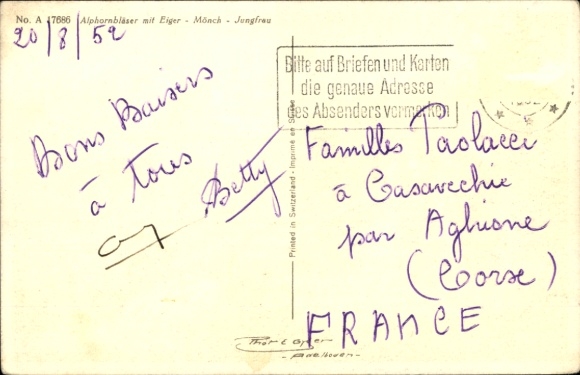 No. A 17686 Alphornbläser mit Eiger - Mönch - Jungfrau
20/8/52
Bons Baisers
à tous
Betty
Bitte auf Briefen und Karten
die genaue Adresse
des Absenders vermerken
Printed in Switzerland - Imprimé en Suisse
Familles Paolacci
à Casavecchie
par Aghione
(Corse)
FRANCE